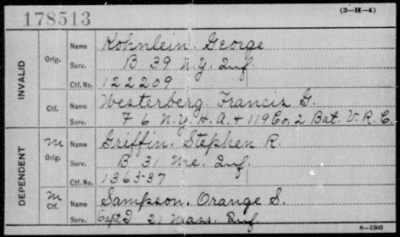 178513
(3-H-4)
INVALID
Orig. Name Kohnlein George
Serv. B 39 N.Y. Inf.
Ctf. No. 122209
Ctf. Name Westerberg, Francis G.
Serv. F 6 N.Y.H.A. + 119 Co, 2 Bat. V.R.C.
DEPENDENT
M Orig. Name Griffin, Stephen R.
Serv. B 31 Me. Inf.
Ctf. No. 136587
M Ctf. Name Sampson, Orange S.
Serv. Capt 21 Mass. Inf.
6-1305